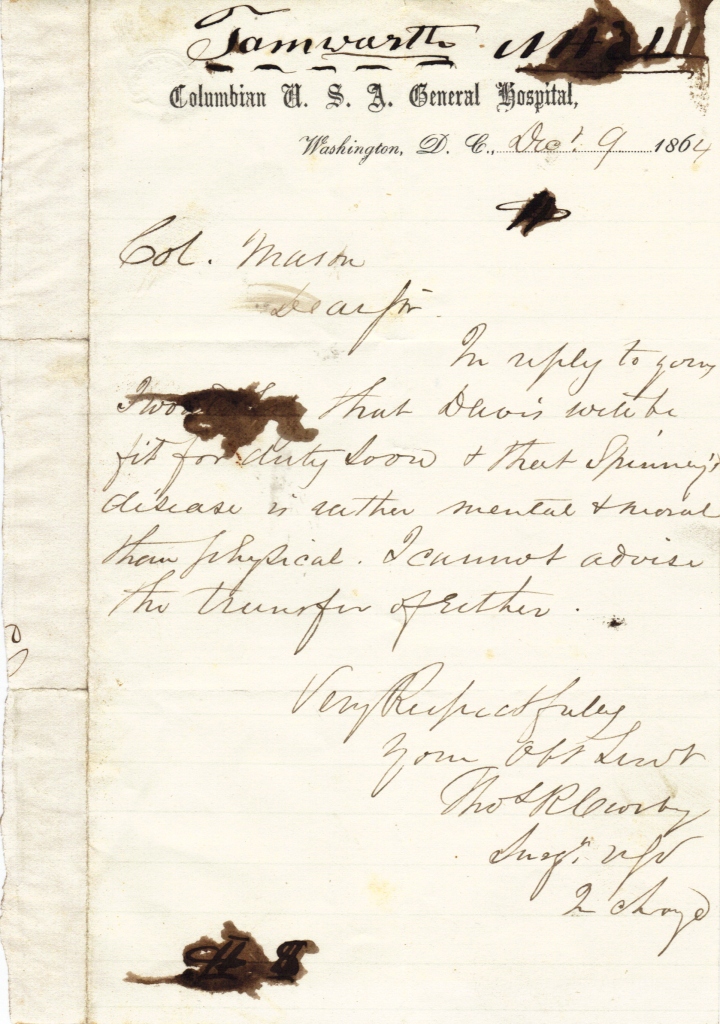 Tamworth NH
Columbian U. S. A. General Hospital,
Washington, D. C., Decr. 9 1864
Col. Mason
Dear Sir
In reply to yours
I would that Davis will be
fit for duty soon & that Spinney's
disease is rather mental & moral
than physical. I cannot advise
the transfer of either.
Very Respectfully
Your Obt Servt
Thos R Crosby
Surgn. USV
In charge